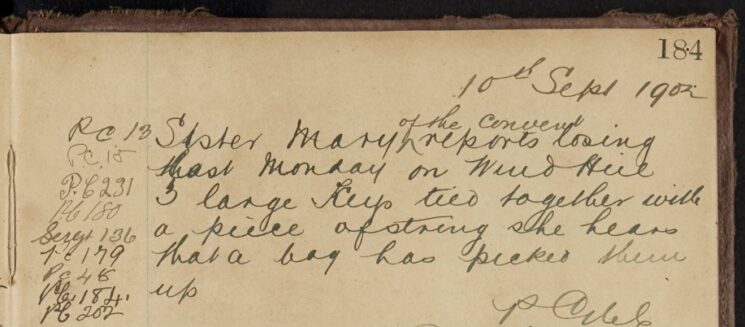 184
10th Sept 1902
P.C 13
P.C. 15
P.C 231
P.C 180
Sergt 136
P.C 179
P.C 48
P.C. 184.
P.C 202
Sister Mary of the Convent reports losing
last Monday on Wind Hill
3 large Keys tied together with
a piece of string she hears
that a boy has picked them
up